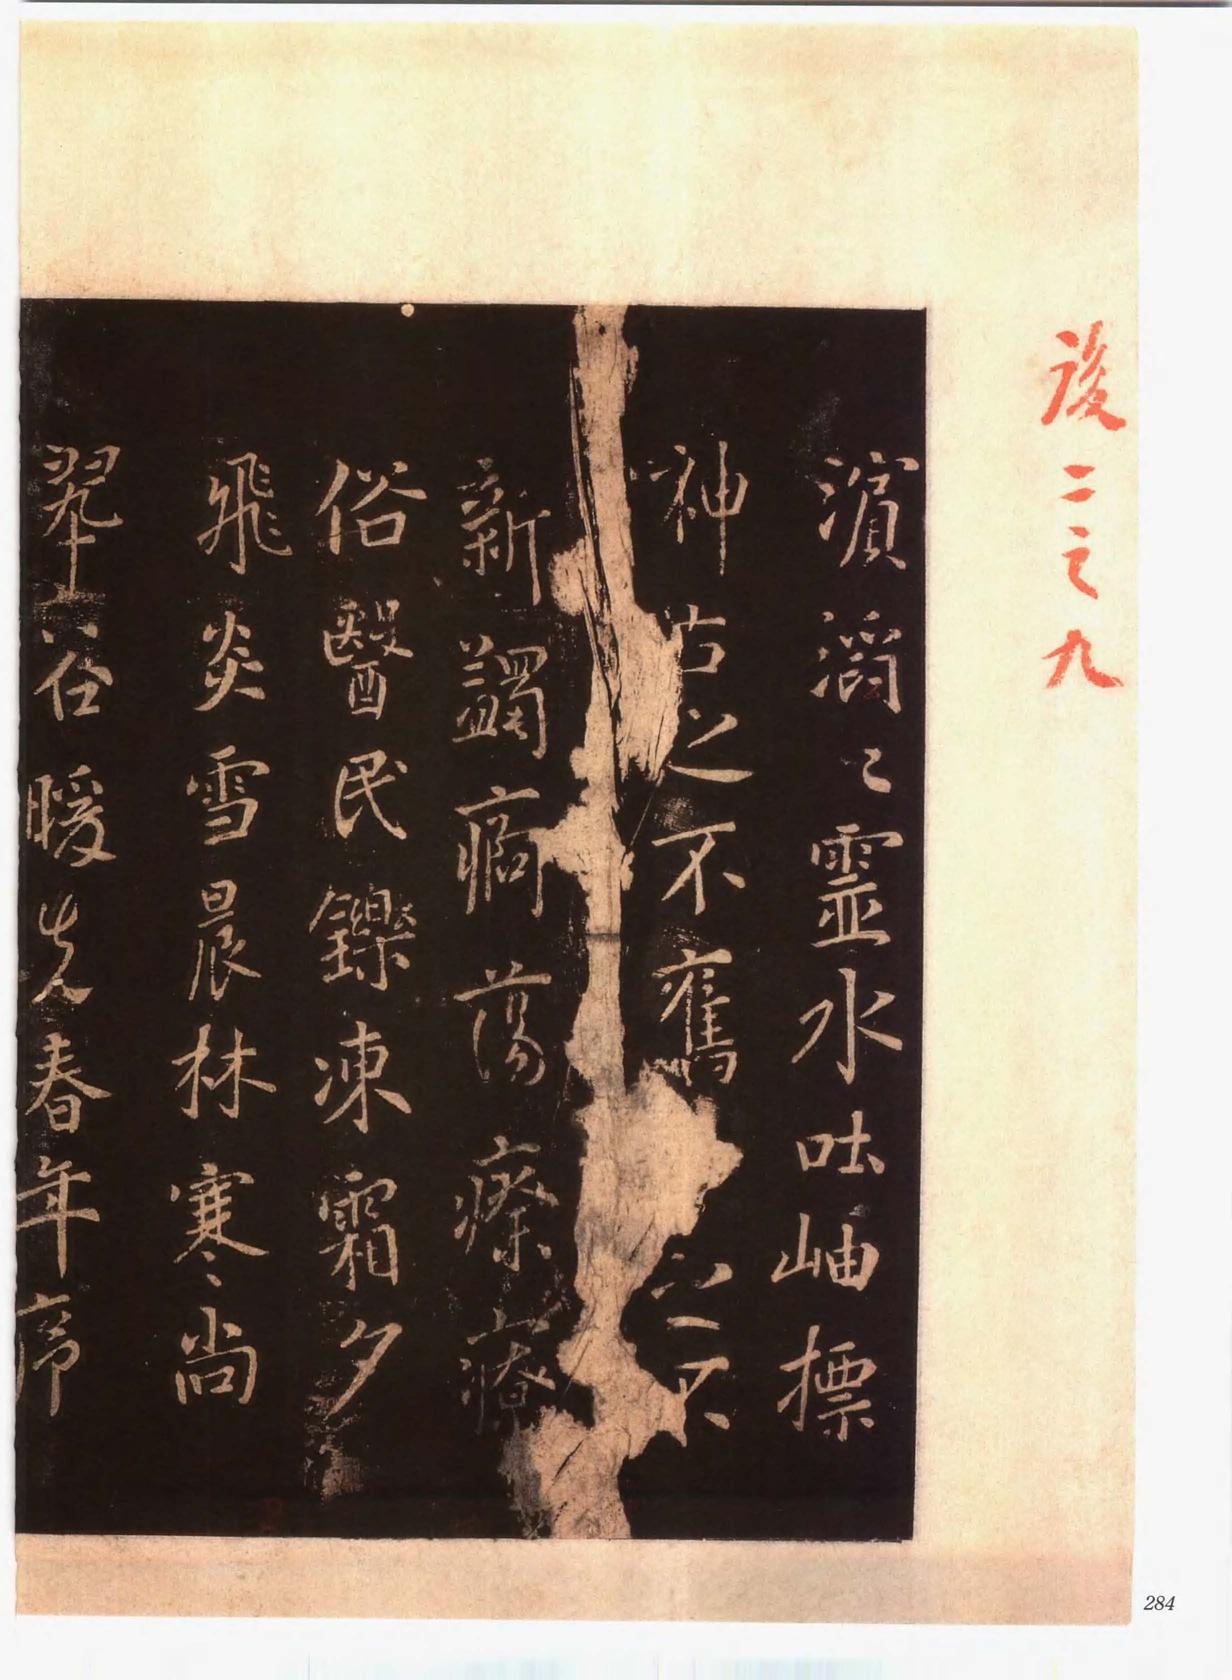 後二之九
濱滔〻靈水吐岫標
神古之不舊之不
新蠲痾蕩瘵療
俗醫民鑠凍霜夕
飛炎雪晨林寒尚
翠谷暖先春年序
284